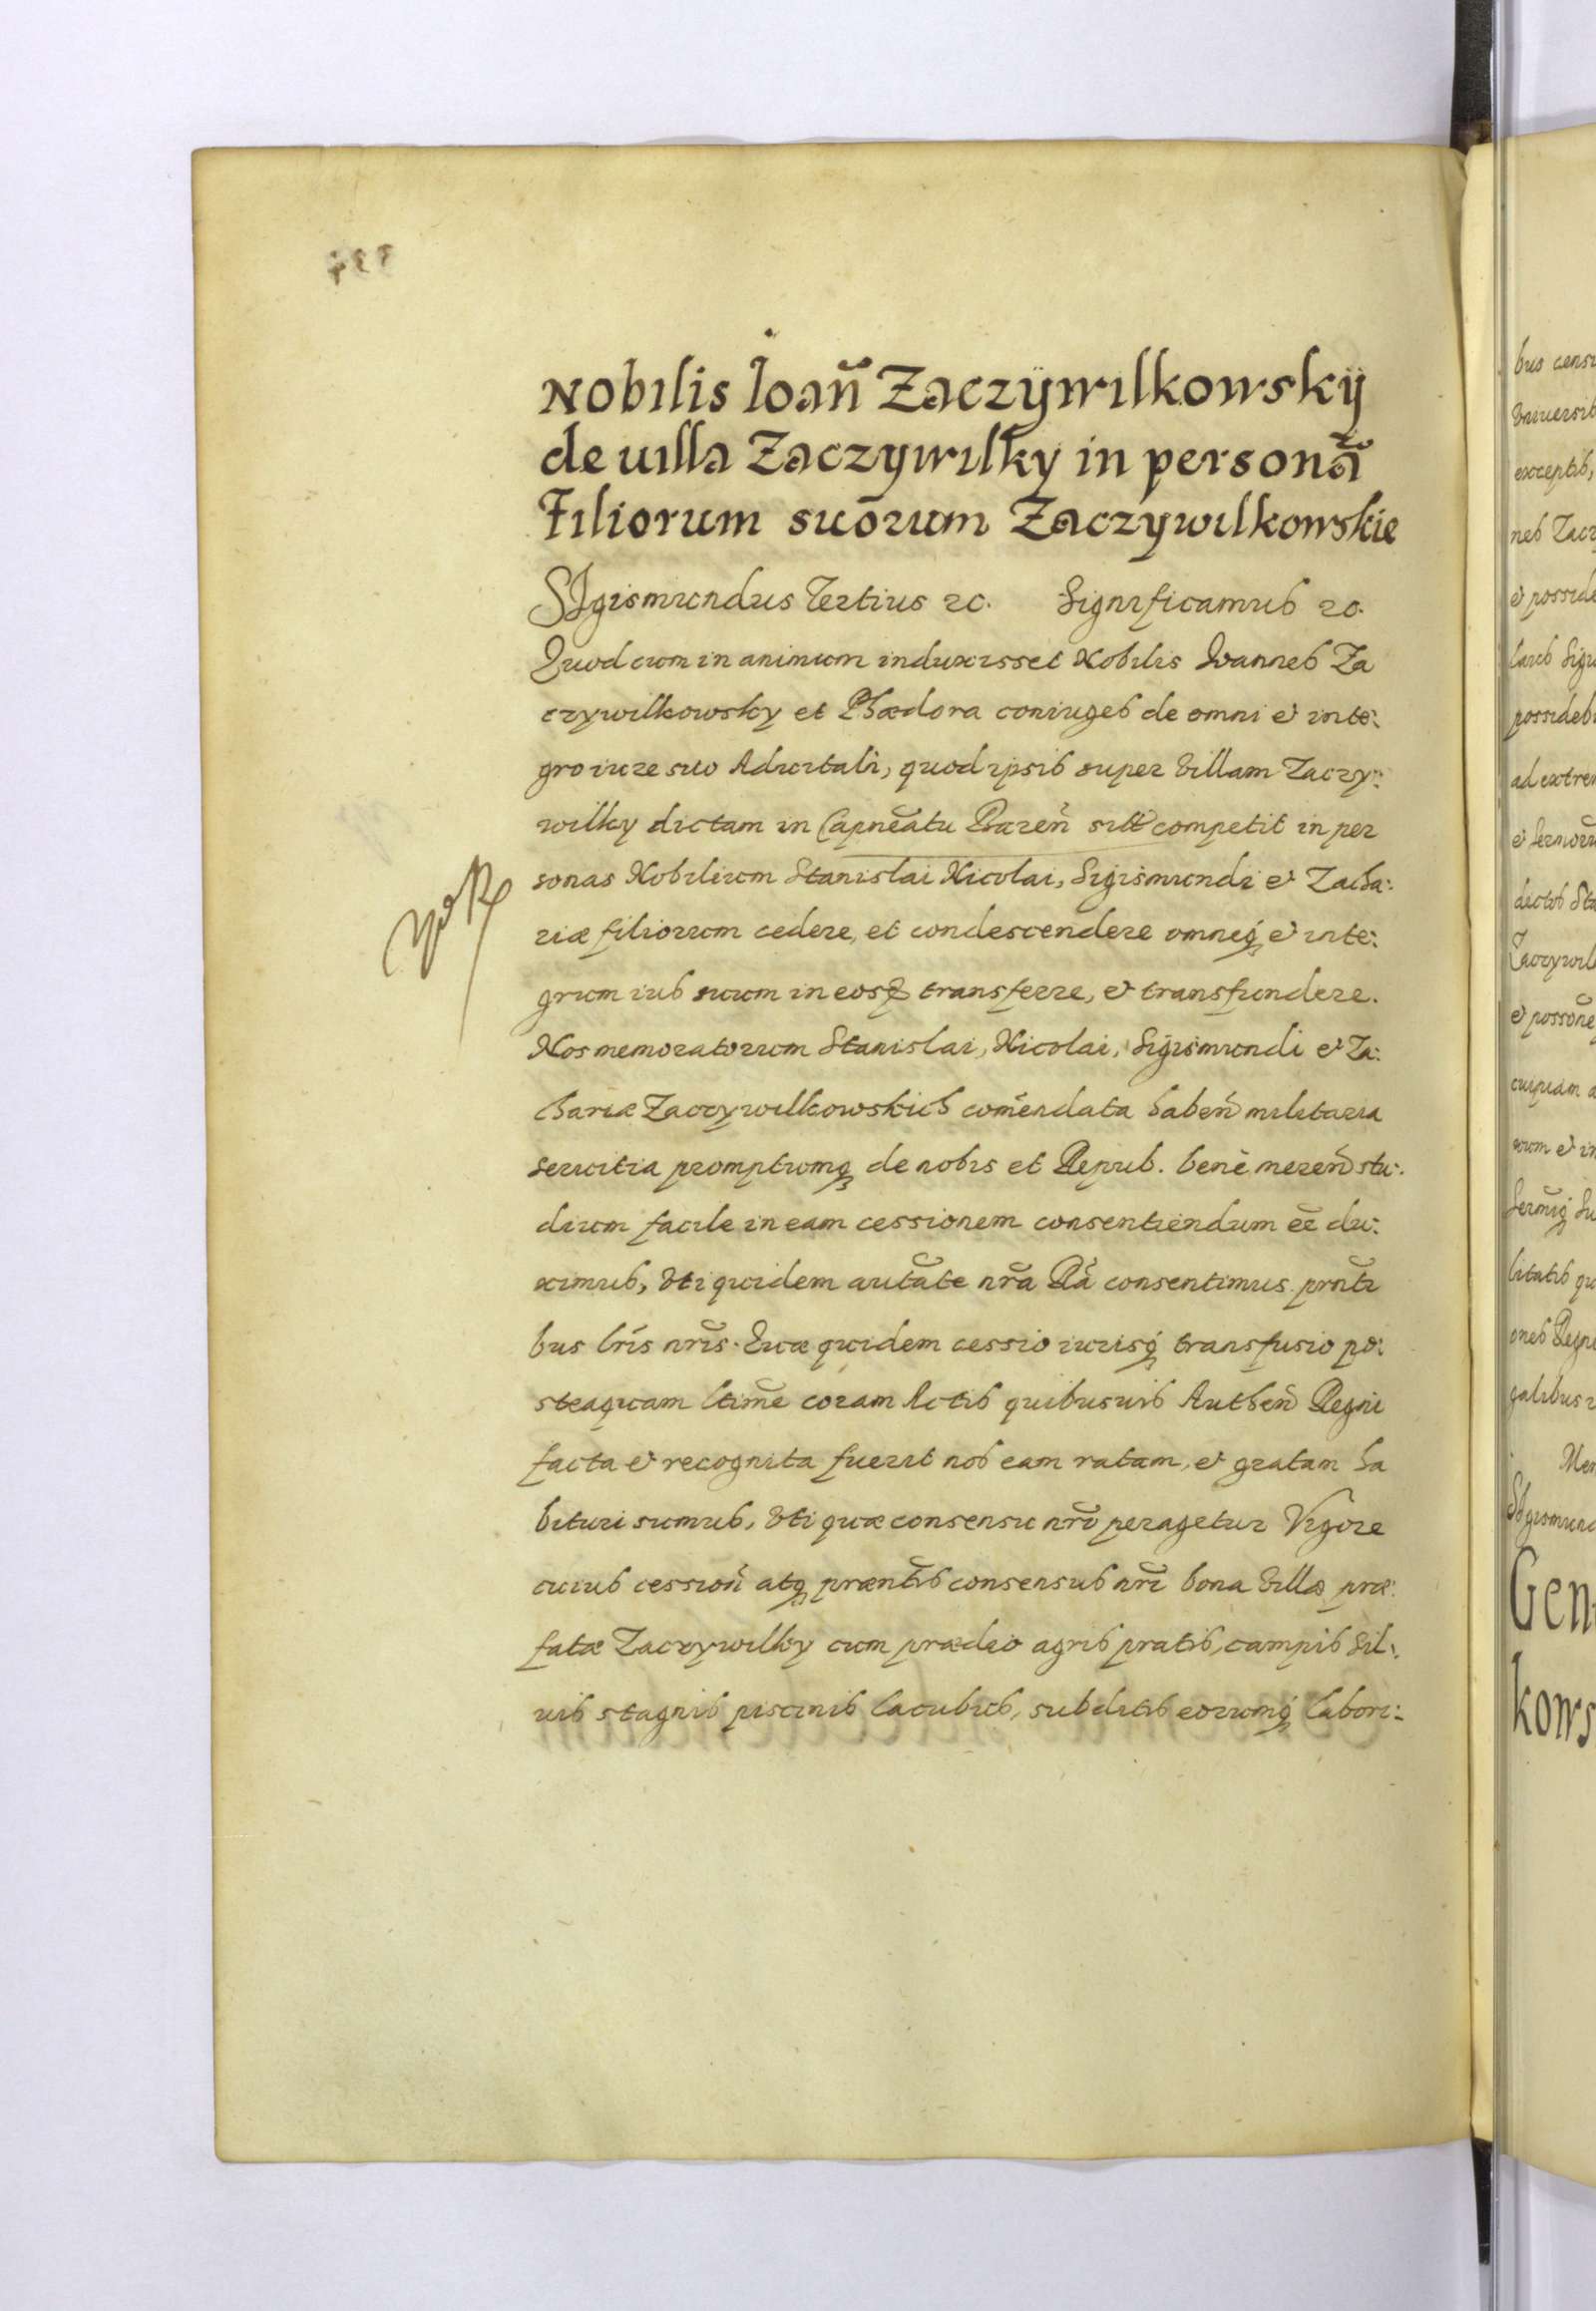 Nobilis Ioañ Zaczÿwilkowskÿ
de uilla Zaczywilky in personã
Filiorum suorum Zaczywilkowskie
SIgismundus Tertius rc. Significamus rc.
Quod cum in animum induxisset Nobilis Ioannes Za
czywilkowsky et Phædora coniuges de omni et inte:
gro iure suo Aduitali, quod ipsis super Villam Zaczy:
wilky dictam in Capneãtu Bareñ sitã competit in per
sonas Nobilium Stanislai Nicolai, Sigismundi et Zacha:
riæ filiorum cedere, et condescendere omneq; et inte:
grum ius suum in eosq; transferre, et transfundere.
Nos memoratorum Stanislai, Nicolai, Sigismundi et Za:
chariæ Zaczywilkowskich com̃endata habeñ militaria
seruitia promptumq; de nobis et Repub. benè mereñ stu:
dium facile in eam cessionem consentiendum eẽ du:
ximus, Vti quidem autãte nr̃a Rã consentimus prñti
bus lr̃is nr̃is. Quæ quidem cessio iurisq; transfusio po:
steaquam ltim̃e coram Actis quibusuis Autheñ Regni
facta et recognita fuerit nos eam ratam, et gratam ha
bituri sumus, Vti quæ consensu nr̃o peragetur Vigore
cuius cessioñ atq; præñtis consensus nr̃i bona Villæ præ:
fatæ Zaczywilky cum prædio agris pratis, campis sil:
uis stagnis piscinis lacubus, subditis eorumq; labori:
bus censi
Vniuersis
exceptis,
nes Zacz
et posside
laus Sigi
possideb
ad extrem
dictos Sta
Zaczywil
et possoñe
cuiquam a
litatis qu
ones Regni
galibus
Sigismund
Gen
kows